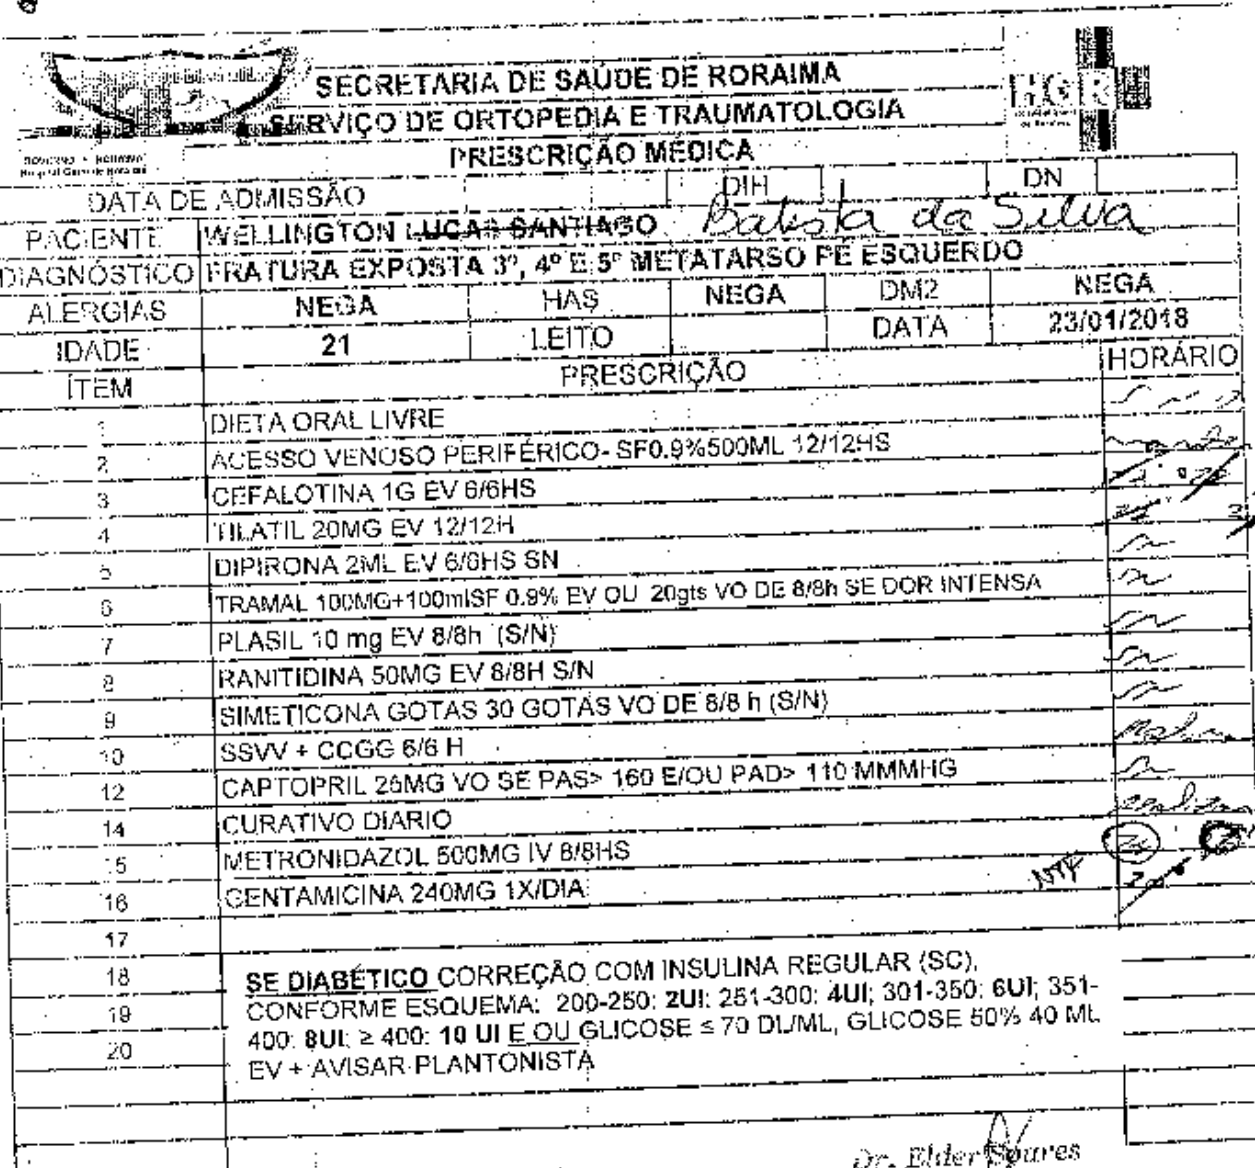 SECRETARIA DE SAÚDE DE RORAIMA
SERVIÇO DE ORTOPEDIA E TRAUMATOLOGIA
PRESCRIÇÃO MÉDICA
DATA DE ADMISSÃO DIH DN
PACIENTE WELLINGTON LUCAS SANTIAGO Batista da Silva
DIAGNÓSTICO FRATURA EXPOSTA 3º, 4º E 5º METATARSO PÉ ESQUERDO
ALERGIAS NEGA HAS NEGA DM2 NEGA
IDADE 21 LEITO DATA 23/01/2018
ÍTEM PRESCRIÇÃO HORÁRIO
1 DIETA ORAL LIVRE
2 ACESSO VENOSO PERIFÉRICO- SF0.9%500ML 12/12HS
3 CEFALOTINA 1G EV 6/6HS
4 TILATIL 20MG EV 12/12H
5 DIPIRONA 2ML EV 6/6HS SN
6 TRAMAL 100MG+100mlSF 0.9% EV OU 20gts VO DE 8/8h SE DOR INTENSA
7 PLASIL 10 mg EV 8/8h (S/N)
8 RANITIDINA 50MG EV 8/8H S/N
9 SIMETICONA GOTAS 30 GOTAS VO DE 8/8 h (S/N)
10 SSVV + CCGG 6/6 H
12 CAPTOPRIL 25MG VO SE PAS> 160 E/OU PAD> 110 MMMHG
14 CURATIVO DIARIO
15 METRONIDAZOL 500MG IV 8/8HS
16 GENTAMICINA 240MG 1X/DIA
17
18 SE DIABÉTICO CORREÇÃO COM INSULINA REGULAR (SC),
19 CONFORME ESQUEMA: 200-250: 2UI; 251-300: 4UI; 301-350: 6UI; 351-
20 400: 8UI; ≥ 400: 10 UI E OU GLICOSE ≤ 70 DL/ML, GLICOSE 50% 40 ML
EV + AVISAR PLANTONISTA
Dr. Elder Soares